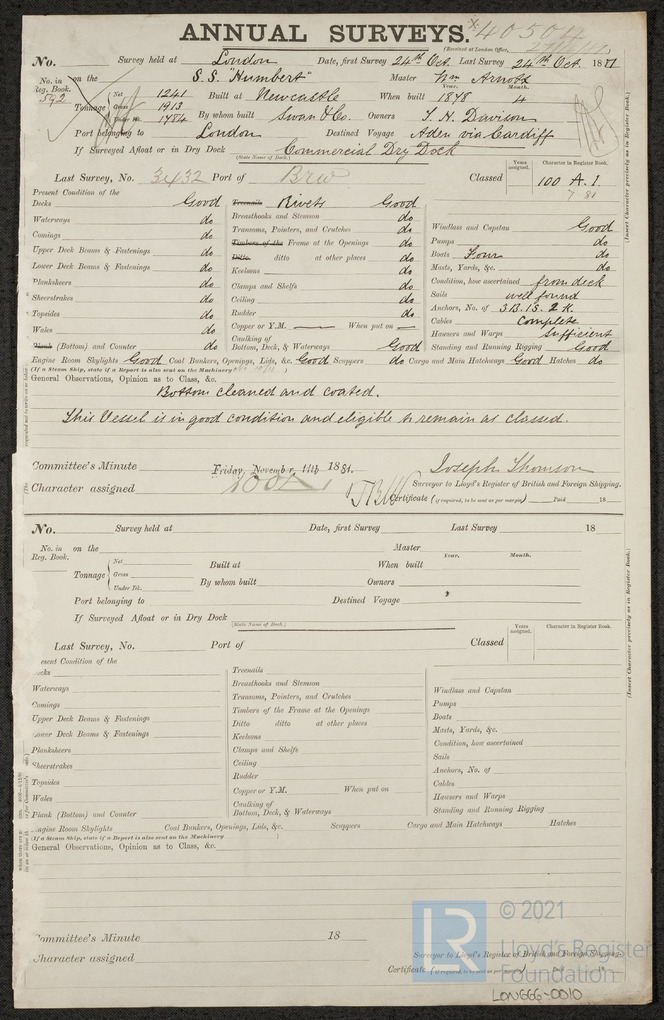 ANNUAL SURVEYS. 40504
(Received at London Office,
No. Survey held at London Date, first Survey 24th Oct. Last Survey 24th Oct. 1881
No. in Reg. Book. 592 on the S.S. "Humbert" Master Wm Arnold
Tonnage Net 1241 Built at Newcastle When built Year. 1878 Month. 4
Gross 1913
Under Dk. 1784 By whom built Swan & Co. Owners T. H. Davison
Port belonging to London Destined Voyage Aden via Cardiff
If Surveyed Afloat or in Dry Dock Commercial Dry Dock
(State Name of Dock.)
Last Survey, No. 3432 Port of Classed Years assigned. Character in Register Book. 100 A.1.
7 81
(Insert Character precisely as in Register Book.)
Present Condition of the
Decks Good
Waterways do
Comings do
Upper Deck Beams & Fastenings do
Lower Deck Beams & Fastenings do
Planksheers do
Sheerstrakes do
Topsides do
Wales do
Plank (Bottom) and Counter do
Treenails Rivets Good
Breasthooks and Stemson do
Transoms, Pointers, and Crutches do
Timbers of the Frame at the Openings do
Ditto ditto at other places do
Keelsons do
Clamps and Shelfs do
Ceiling do
Rudder do
Copper or Y.M. — When put on —
Caulking of
Bottom, Deck, & Waterways Good
Windlass and Capstan Good
Pumps do
Boats Four do
Masts, Yards, &c. do
Condition, how ascertained from deck
Sails well found
Anchors, No. of 3 B. 1 S. 2 K.
Cables Complete
Hawsers and Warps Sufficient
Standing and Running Rigging Good
Engine Room Skylights Good Coal Bunkers, Openings, Lids, &c. Good Scuppers do Cargo and Main Hatchways Good Hatches do
(If a Steam Ship, state if a Report is also sent on the Machinery
General Observations, Opinion as to Class, &c.
Bottom cleaned and coated.
This Vessel is in good condition and eligible to remain as classed.
Committee's Minute Friday, November 11th 1881.
Joseph Thomson
Character assigned 100A1 Surveyor to Lloyd's Register of British and Foreign Shipping.
Certificate (if required, to be sent as per margin) Paid 18
No. Survey held at Date, first Survey Last Survey 18
No. in Reg. Book. on the Master
Year. Month.
Tonnage Net Built at When built
Gross
Under Dk. By whom built Owners
Port belonging to Destined Voyage
If Surveyed Afloat or in Dry Dock
(State Name of Dock.)
Last Survey, No. Port of Classed Years assigned. Character in Register Book.
(Insert Character precisely as in Register Book.)
esent Condition of the
ecks
Waterways
Comings
Upper Deck Beams & Fastenings
ower Deck Beams & Fastenings
Planksheers
Sheerstrakes
Topsides
Wales
Plank (Bottom) and Counter
Treenails
Breasthooks and Stemson
Transoms, Pointers, and Crutches
Timbers of the Frame at the Openings
Ditto ditto at other places
Keelsons
Clamps and Shelfs
Ceiling
Rudder
Copper or Y.M. When put on
Caulking of
Bottom, Deck, & Waterways
Windlass and Capstan
Pumps
Boats
Masts, Yards, &c.
Condition, how ascertained
Sails
Anchors, No. of
Cables
Hawsers and Warps
Standing and Running Rigging
ngine Room Skylights Coal Bunkers, Openings, Lids, &c. Scuppers Cargo and Main Hatchways Hatches
(If a Steam Ship, state if a Report is also sent on the Machinery )
General Observations, Opinion as to Class, &c.
ommittee's Minute 18
haracter assigned
Surveyor to Lloyd's Register of British and Foreign Shipping.
Certificate (if required, to be sent as per margin) 18
LR © 2021
Lloyd's Register
Foundation
LON666-0010